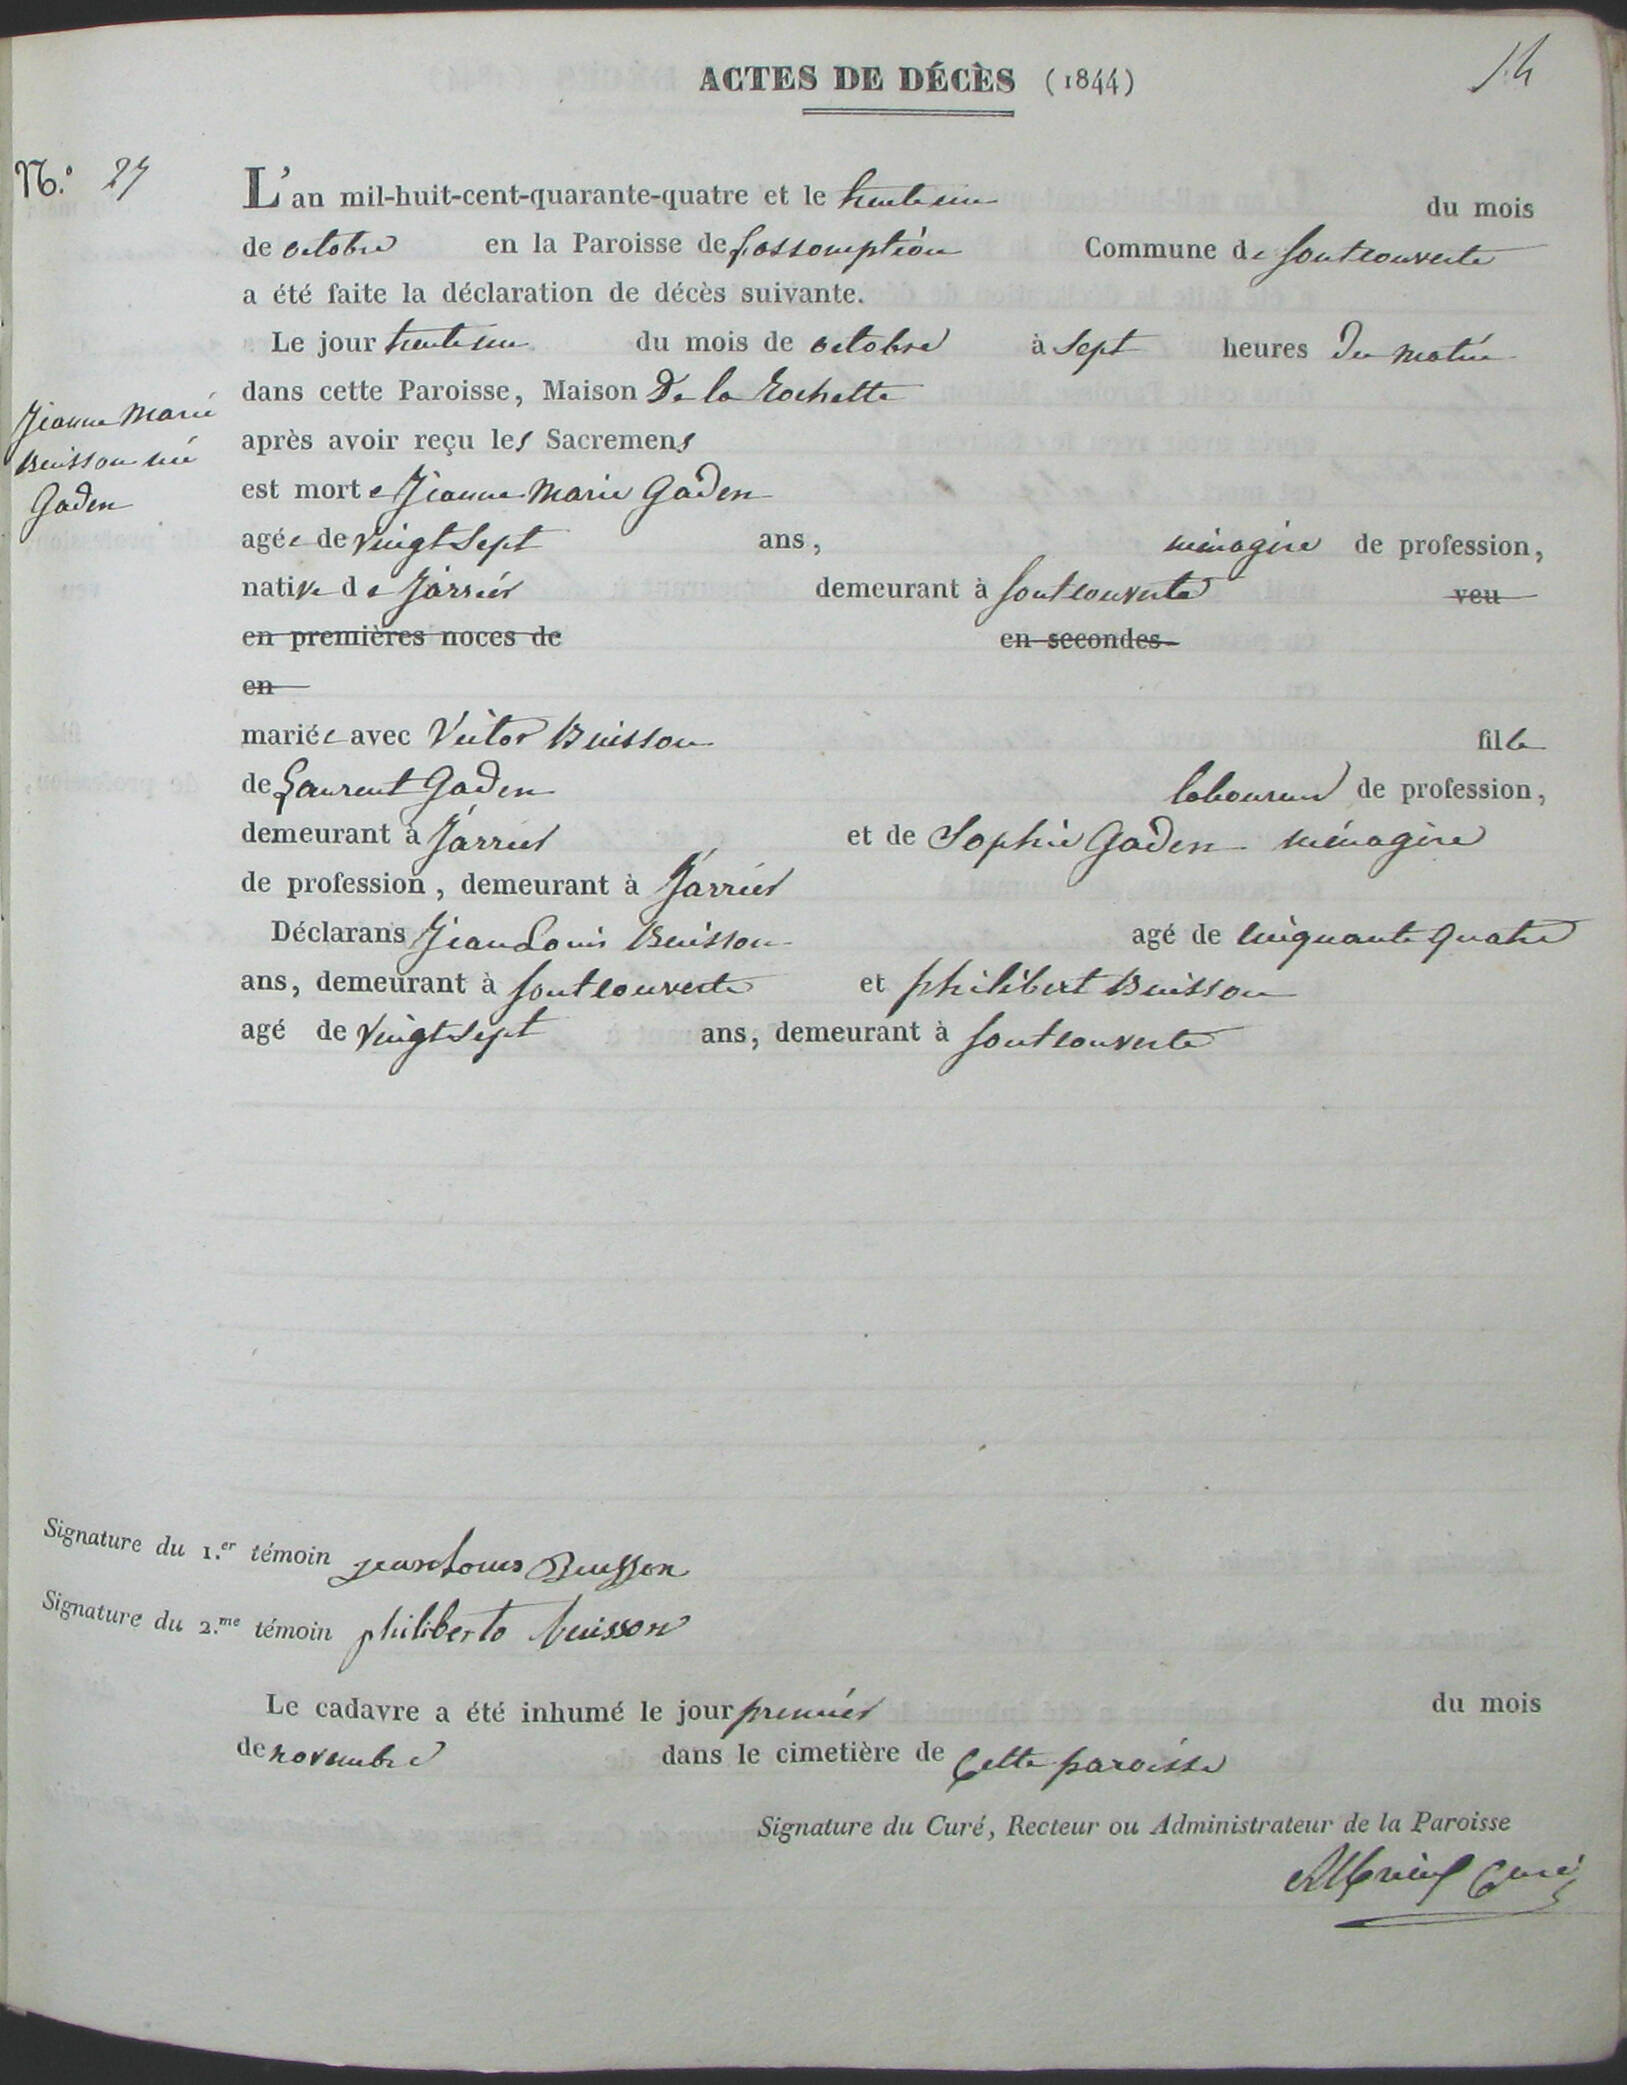 ACTES DE DÉCÈS (1844)
14
N.° 27
L'an mil-huit-cent-quarante-quatre et le trente un du mois
de octobre en la Paroisse de Lassomption Commune de fontcouverte
a été faite la déclaration de décès suivante.
Le jour trente un du mois de octobre à sept heures du matin
dans cette Paroisse, Maison De la Rochette
après avoir reçu les Sacremens
Jeanne Marie
Buisson née
Gaden
est morte Jeanne Marie Gaden
agée de vingt sept ans, ménagère de profession,
native de Jarrier demeurant à fontcouverte veu
en premières noces de en secondes
en
mariée avec Victor Buisson fille
de Laurent Gaden laboureur de profession,
demeurant à Jarrier et de Sophie Gaden ménagère
de profession, demeurant à Jarrier
Déclarans Jean Louis Buisson agé de cinquante quatre
ans, demeurant à fontcouverte et philibert Buisson
agé de vingt sept ans, demeurant à fontcouverte
Signature du 1.er témoin jean Louis Buisson
Signature du 2.me témoin philiberto buisson
Le cadavre a été inhumé le jour premier du mois
de novembre dans le cimetière de cette paroisse
Signature du Curé, Recteur ou Administrateur de la Paroisse
Curé